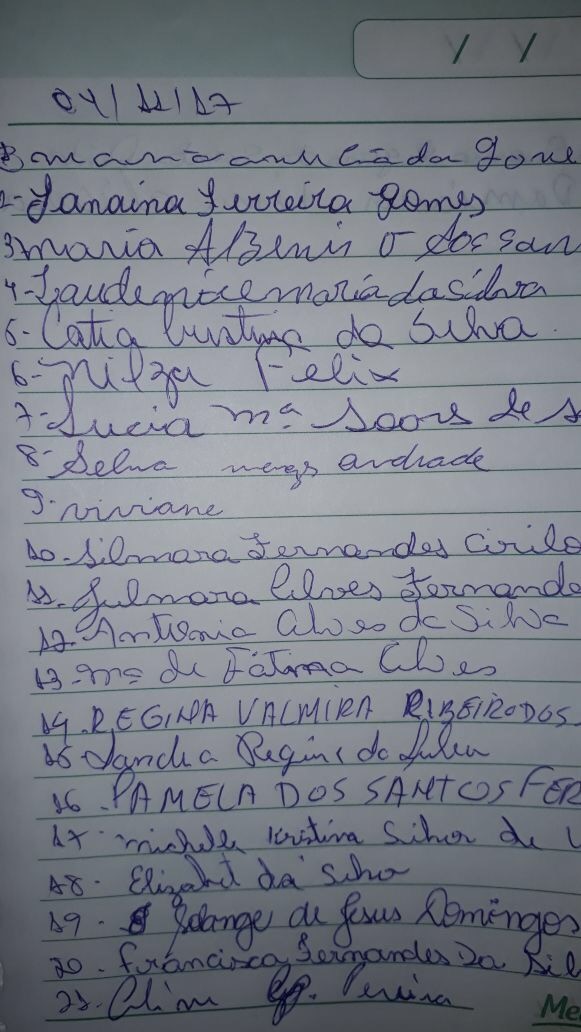 / /
04/11/17
maria anuciada Gome
2-Janaina Ferreira gomes
3 maria Albenis O dos San
4-Laudenice maria da silva
5-Catia Cristina da Silva.
6-Nilza Felix
7-Lucia Mª Soares de S
8-Selma andrade
9-viviane
10-Silmara Fernandes Cirilo
11-Gulmara Alves Fernande
12-Antonia Alves da Silva
13-Mª de Fátima Alves
14.REGINA VALMIRA RIBEIRO DOS
15-Sandra Regina da Silva
16.PAMELA DOS SANTOS FER
17-michelle Kristina Silva de
18-Elizabet da Silva
19-Solange de Jesus Domingos
20.Francisca Fernandes Da Sil
21. Pereira